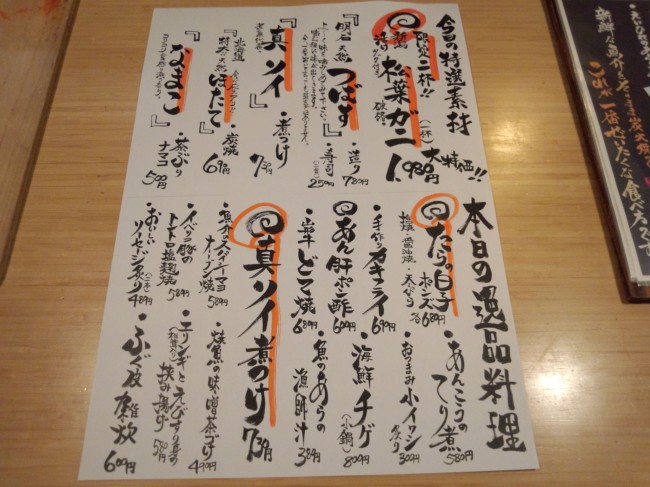 今日の特選素材
限定二杯!!
大特価!!
松葉ガニ
(一杯)
1,980円
明石 天然
『つばす』
・造り 780円
・寿司 (二貫) 259円
『真ソイ』
・煮つけ 730円
北海道
特大 ほたて』
・炭焼 69円
『なまこ』
・茶ぶりナマコ 500円
本日の逸品料理
たらの白子
ポンズ 689円
塩焼・醤油焼・天ぷら
・あんこうのてり煮 580円
・手作りカキフライ 699円
・おつまみ小イワシ炙り 300円
あん肝ポン酢 600円
・海鮮チゲ (小鍋) 800円
どて焼 689円
・魚のあらの漁師汁 389円
真ソイ煮つけ 730円
・魚介のスパイシーマヨオーブン焼 589円
・焼魚の味噌茶づけ 499円
・イベリコ豚のトントロ塩麹焼 589円
・エリンギとえびすり身の挟み揚げ 580円
・おいしいソーセージ炙り (二本) 489円
・ふぐ皮雑炊 600円
これが一番ぜいたくな食べ方です